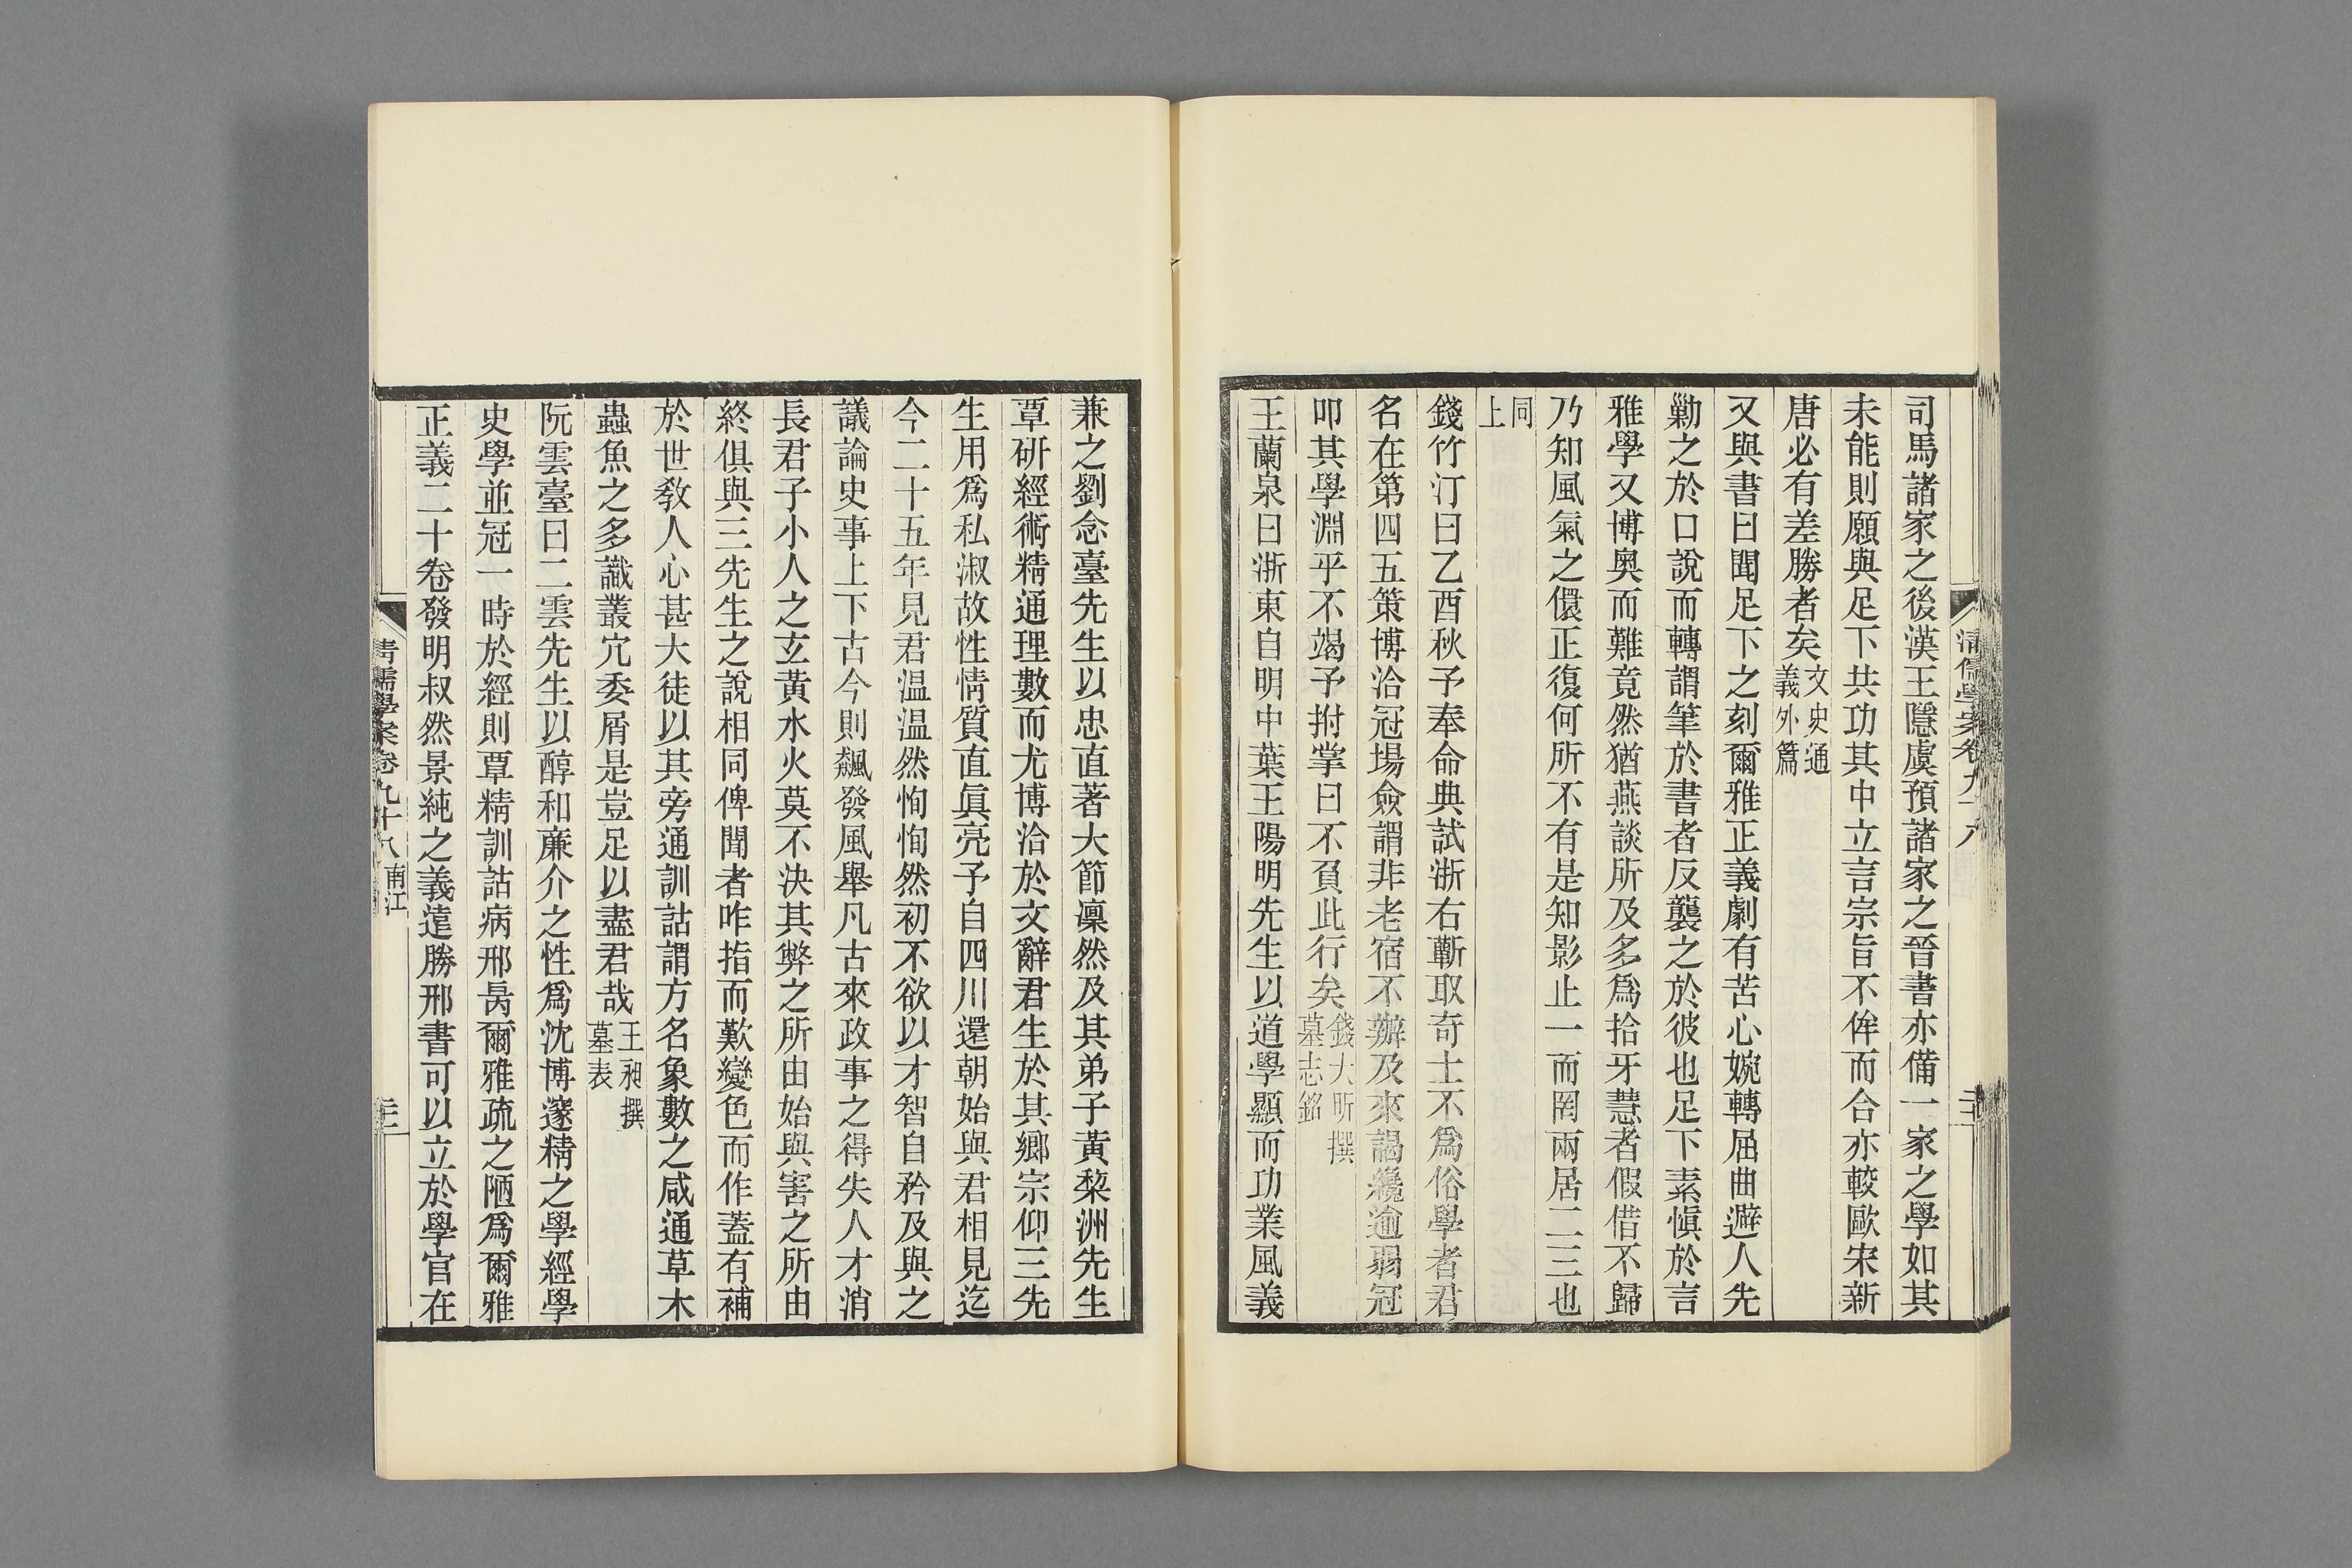 清儒學案卷九十八
司馬諸家之後漢王隱虞預諸家之晉書亦備一家之學如其
未能則願與足下共功其中立言宗旨不侔而合亦較歐宋新
唐必有差勝者矣文史通義外篇
又與書曰聞足下之刻爾雅正義劇有苦心婉轉屈曲避人先
勦之於口說而轉謂筆於書者反襲之於彼也足下素愼於言
雅學又博奧而難竟然猶燕談所及多爲拾牙慧者假借不歸
乃知風氣之儇正復何所不有是知影止一而罔兩居二三也
同上
錢竹汀曰乙酉秋予奉命典試浙右蘄取奇士不爲俗學者君
名在第四五策博洽冠場僉謂非老宿不辦及來謁纔逾弱冠
叩其學淵乎不竭予拊掌曰不負此行矣錢大昕撰墓志銘
王蘭泉曰浙東自明中葉王陽明先生以道學顯而功業風義
兼之劉念臺先生以忠直著大節凜然及其弟子黃棃洲先生
覃研經術精通理數而尤博洽於文辭君生於其鄉宗仰三先
生用爲私淑故性情質直眞亮予自四川還朝始與君相見迄
今二十五年見君温温然恂恂然初不欲以才智自矜及與之
議論史事上下古今則飆發風舉凡古來政事之得失人才消
長君子小人之玄黃水火莫不決其弊之所由始與害之所由
終俱與三先生之說相同俾聞者咋指而歎變色而作蓋有補
於世敎人心甚大徒以其旁通訓詁謂方名象數之咸通草木
蟲魚之多識叢宂委屑是豈足以盡君哉王昶撰墓表
阮雲臺曰二雲先生以醇和廉介之性爲沈博邃精之學經學
史學並冠一時於經則覃精訓詁病邢昺爾雅疏之陋爲爾雅
正義二十卷發明叔然景純之義遠勝邢書可以立於學官在
清儒學案卷九十八 南江